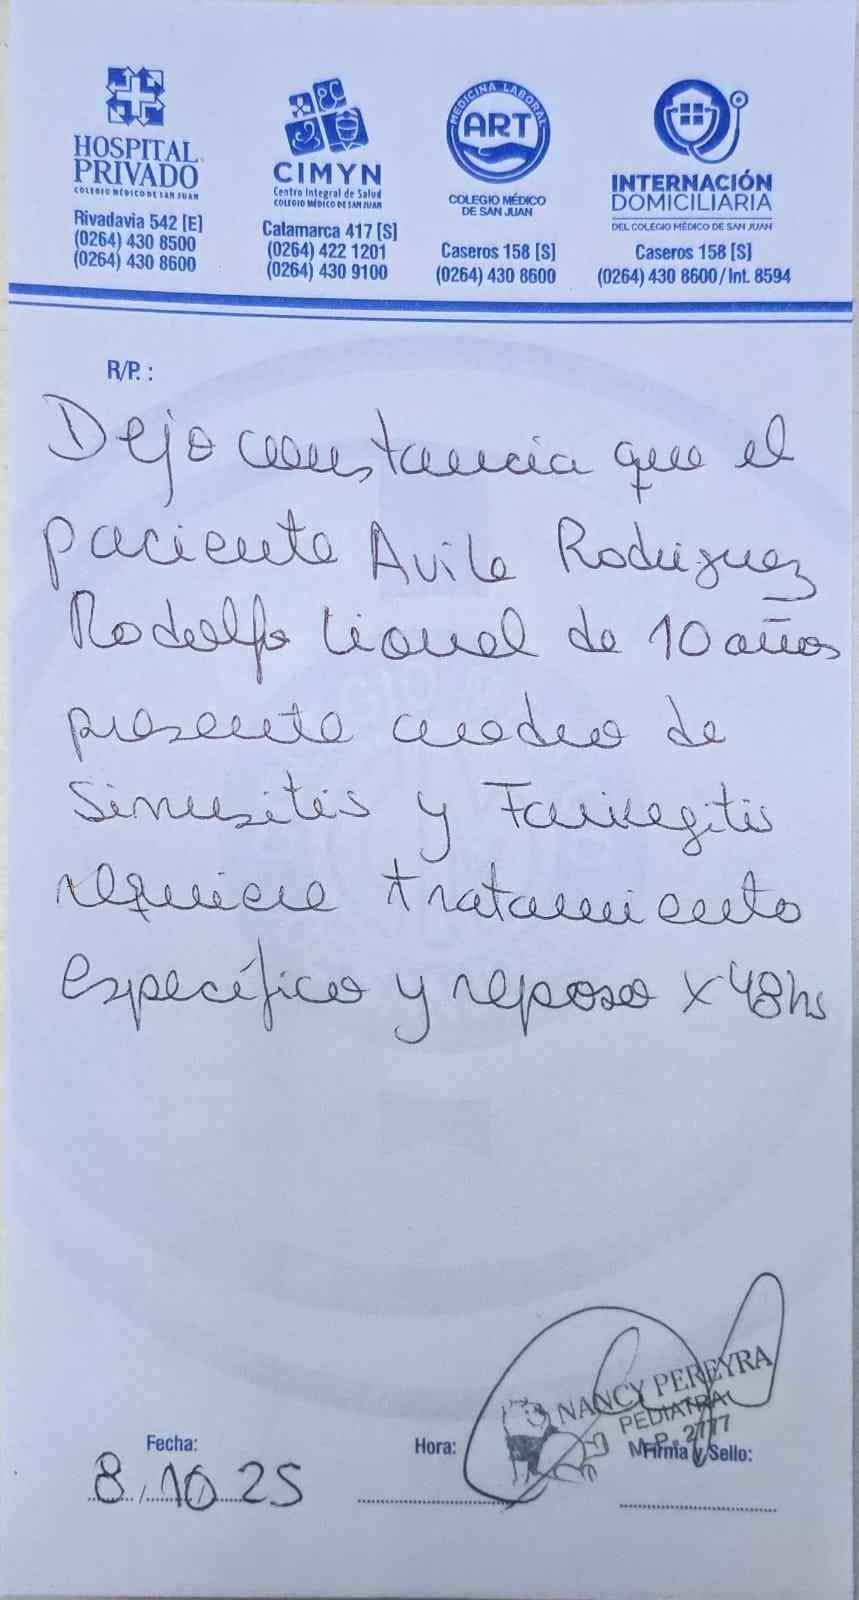 HOSPITAL PRIVADO
COLEGIO MÉDICO DE SAN JUAN
Rivadavia 542 [E]
(0264) 430 8500
(0264) 430 8600
CIMYN
Centro Integral de Salud
COLEGIO MÉDICO DE SAN JUAN
Catamarca 417 [S]
(0264) 422 1201
(0264) 430 9100
MEDICINA LABORAL
ART
COLEGIO MÉDICO
DE SAN JUAN
Caseros 158 [S]
(0264) 430 8600
INTERNACIÓN
DOMICILIARIA
DEL COLEGIO MÉDICO DE SAN JUAN
Caseros 158 [S]
(0264) 430 8600/Int. 8594
R/P. :
Dejo constancia que el
paciente Avila Rodriguez
Rodolfo Lionel de 10 años
presenta cuadro de
Sinusitis y Faringitis
requiere tratamiento
específico y reposo x 48hs
NANCY PEREYRA
PEDIATRA
M.P. 2777
Fecha:
Hora:
Firma y Sello:
8.10.25